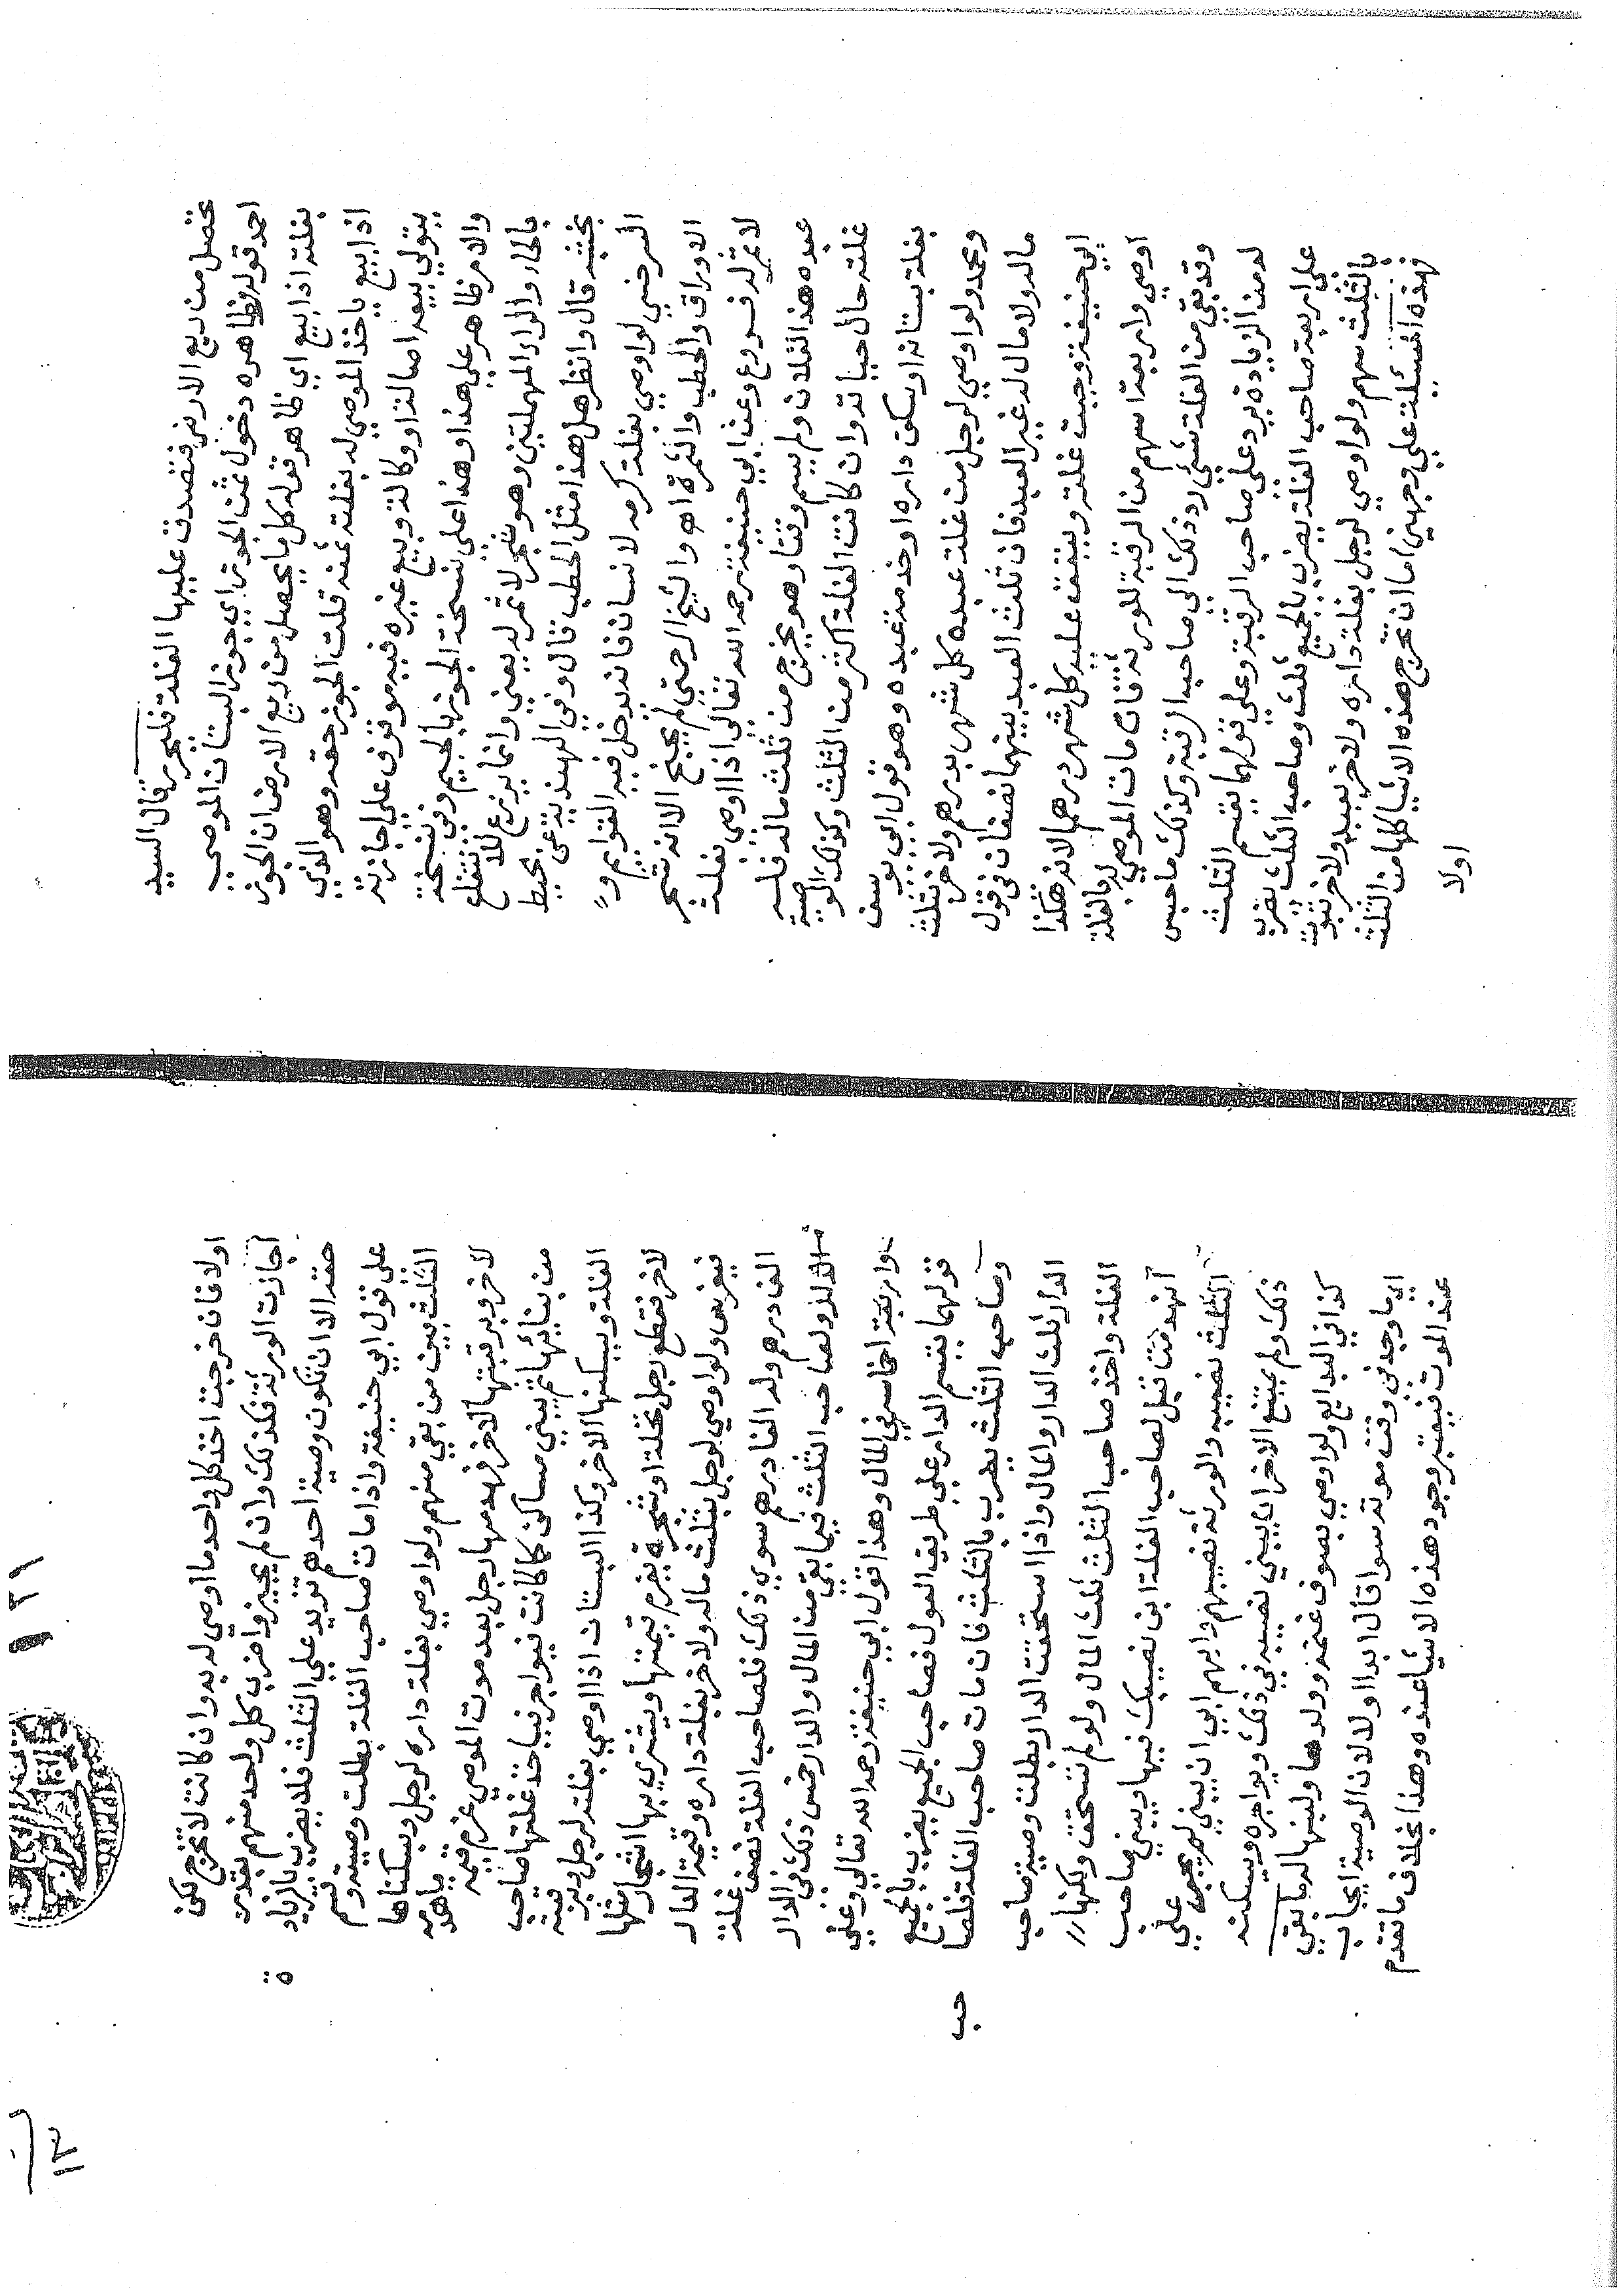 تحصل من ريع الارض فتصدق عليها الغلة فليحرر قال السيد
احمد قوله فظاهره دخول ثمن الجوز اي جوز البستان الموصى
بغلته اذا بيع اي ظاهر قوله كل ما يحصل من ريع الارض ان الجوز
اذا بيع ياخذ الموصى له بغلته ثمنه قلت الجوز حقه وهو الذي
يتولى بيعه اصالة او وكالة وبيع غيره فيه موقوف على اجازته
والامر ظاهر على هذا وهذا على نسخة الجوز بالجيم وفي نسخة
بالحاء والراء المهملتين وهو شجر لا ثمر له يعني وانما يزرع للانتفاع
بخشبه قال وانظر هل هذا مثل الحطب قال وفي الهندية عن محيط
السرخسي لو اوصى بغلة كرمه لانسان فانه يدخل فيه القوايم و
الاوراق والحطب والثمرة اهـ والشيخ الرحمتي لم يحتج الا انه شجر
لا ثمر له فسوع وعن ابي حنيفة رحمه الله تعالى اذا اوصى بغلة
عبده هذا لفلان ولم يسم وقتا وهو يخرج من ثلث ماله فله
غلته حال حياته وان كانت الغلة اكثر من الثلث وكذلك الوصية
بغلة بستانه او سكنى داره او خدمة عبده وهو قول ابي يوسف
ومحمد ولو اوصى لرجل من غلة عبده كل شهر بدرهم ولاخر بثلث
ماله ولا مال له غير العبد فان ثلث العبد بينهما نصفان في قول
ابي حنيفة وحبست غلته وينفق عليه كل شهر درهما لانه هكذا
اوصى واربعة اسهم من الرقبة للورثة فان مات الموصى له بالغلة
وقد بقي من الغلة شيء رد ذلك الى صاحب الرقبة وكذلك ما حبس
له من الزيادة يرد على صاحب الرقبة وعلى قولهما يقسم الثلث
على اربعة صاحب الغلة يضرب بالجميع ثلث وصاحب الثلث يضرب
بالثلث سهم ولو اوصى لرجل بغلة داره ولاخر بعبد ولاخر بثوب
فهذه المسئلة على وجهين اما ان تخرج هذه الاشيا كلها من الثلث
اولا
اولا فان خرجت اخذ كل واحد ما اوصى له به وان كانت لا تخرج لكن
اجازت الورثة فكذلك وان لم يجيزوا ضرب كل واحد منهم بقدر
حقه الا ان تكون وصية احدهم تزيد على الثلث فلا يضرب بالزيادة
على قول ابي حنيفة واذا مات صاحب الغلة بطلت وصيته وقسم
الثلث بين من بقي منهم ولو اوصى بغلة داره لرجل وبسكناها
لاخر وبرقبتها لاخر فهدمها رجل بعد موت الموصي غرم قيمة ما هدم
من بنائها ثم يبنى مساكن كما كانت فيواجر فياخذ غلتها صاحب
الغلة ويسكنها الاخر وكذا البستان اذا اوصى بغلته لرجل وبرقبته
لاخر فقطع رجل نخلة او شجرة يغرم قيمتها ويشترى بها اشجار مثلها
فيغرس ولو اوصى لرجل بثلث ماله ولاخر بغلة داره وقيمة الدار
الف درهم وله الفا درهم سوى ذلك فلصاحب الغلة نصف غلة
الدار ولصاحب الثلث فيما بقي من المال والدار خمس ذلك في الدار
واربعة اخماسه في المال وهذا قول ابي حنيفة رحمه الله تعالى وعلى
قولهما يقسم الدار على طريق العول فصاحب الجميع يضرب بالجميع
وصاحب الثلث يضرب بالثلث فان مات صاحب الغلة فلصاحب
الدار ثلث الدار والمال واذا استحقت الدار بطلت وصية صاحب
الغلة واخذ صاحب الثلث ثلث المال ولو لم تستحق ولكنها
انهدمت قيل لصاحب الغلة ابن نصيبك فيها ويبني صاحب
الثلث نصيبه والورثة نصيبهم وايهم ابى ان يبني لم يجبر على
ذلك ولم يمتنع الاخر ان يبني نصيبه في ذلك ويواجره ويسكنه
كذا في البدايع ولو اوصى بصوف غنمه وولدها ولبنها له ما بقي
اي ما وجد في وقت موته سوا قال ابدا اولا لان الوصية ايجاب
عند الموت فيعتبر وجود هذه الاشيا عنده وهذا بخلاف ما تقدم
١٢١